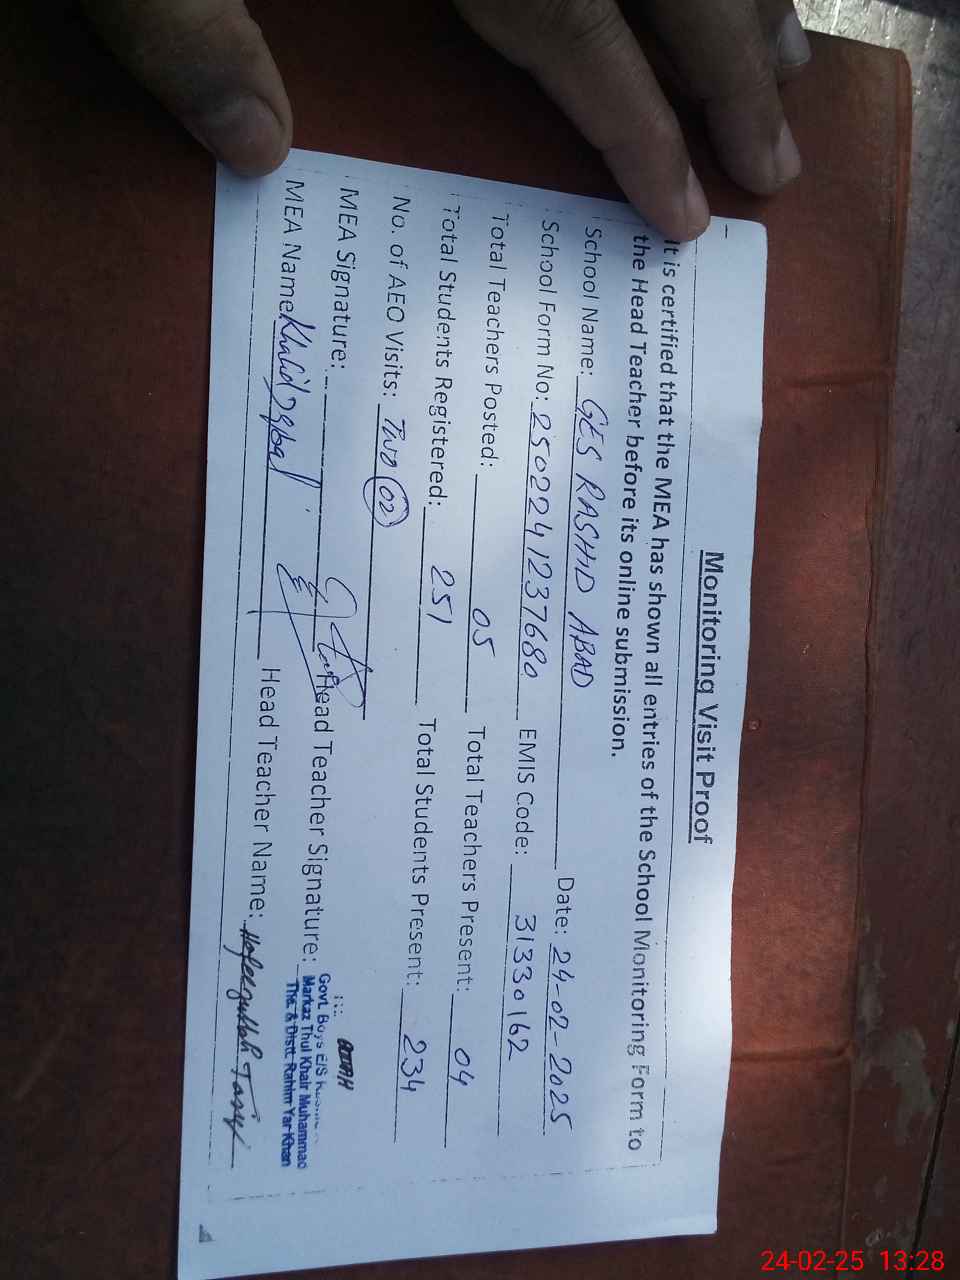 Monitoring Visit Proof
It is certified that the MEA has shown all entries of the School Monitoring Form to
the Head Teacher before its online submission.
School Name: GES RASHID ABAD Date: 24-02-2025
School Form No: 2502241237680 EMIS Code: 31330162
Total Teachers Posted: 05 Total Teachers Present: 04
Total Students Registered: 251 Total Students Present: 234
No. of AEO Visits: Two 02
MEA Signature: Head Teacher Signature:
Govt. Boys E/S
Markaz Thul Khair Muhammad
The. & Distt. Rahim Yar Khan
MEA Name Khalid Iqbal Head Teacher Name: Hafeezullah
24-02-25 13:28